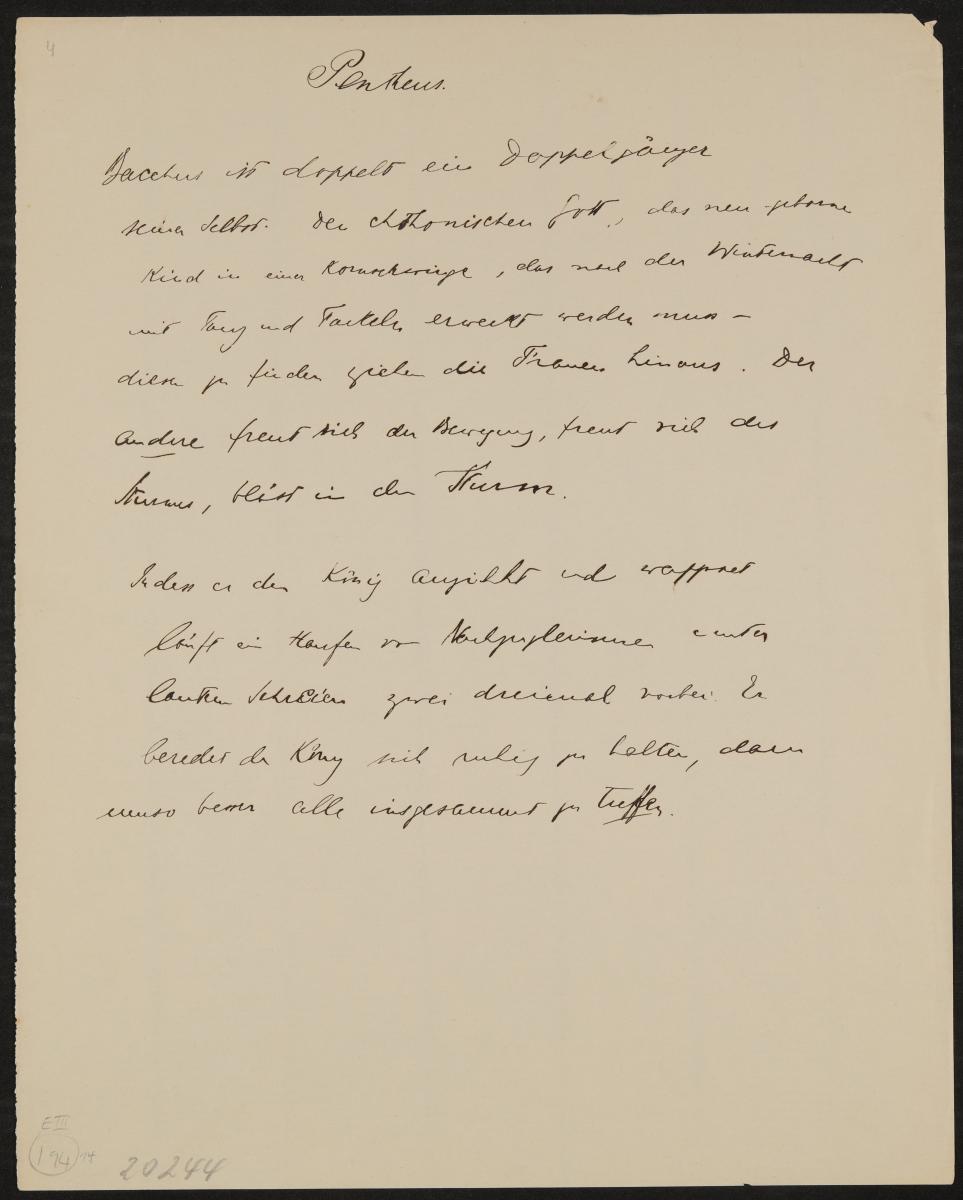 4
Pentheus.
Bacchus ist doppelt ein Doppelgänger
seiner Selbst. Den chthonischen Gott, das neu-geborne
Kind in einer Kornschwinge, das nach der Winternacht
mit Tanz und Fackeln erweckt werden muss –
diesen zu finden ziehen die Frauen hinaus. Der
andere freut sich der Bewegung, freut sich des
Sturmes, bläst in den Sturm.
Indess er den König angilht und wappnet
läuft ein Haufen von Nachzüglerinnen unter
lauten Schreien zwei dreimal vorbei. Er
beredet den König sich ruhig zu halten, dann
umso besser alle insgesammt zu treffen.
E III
194 14
20244